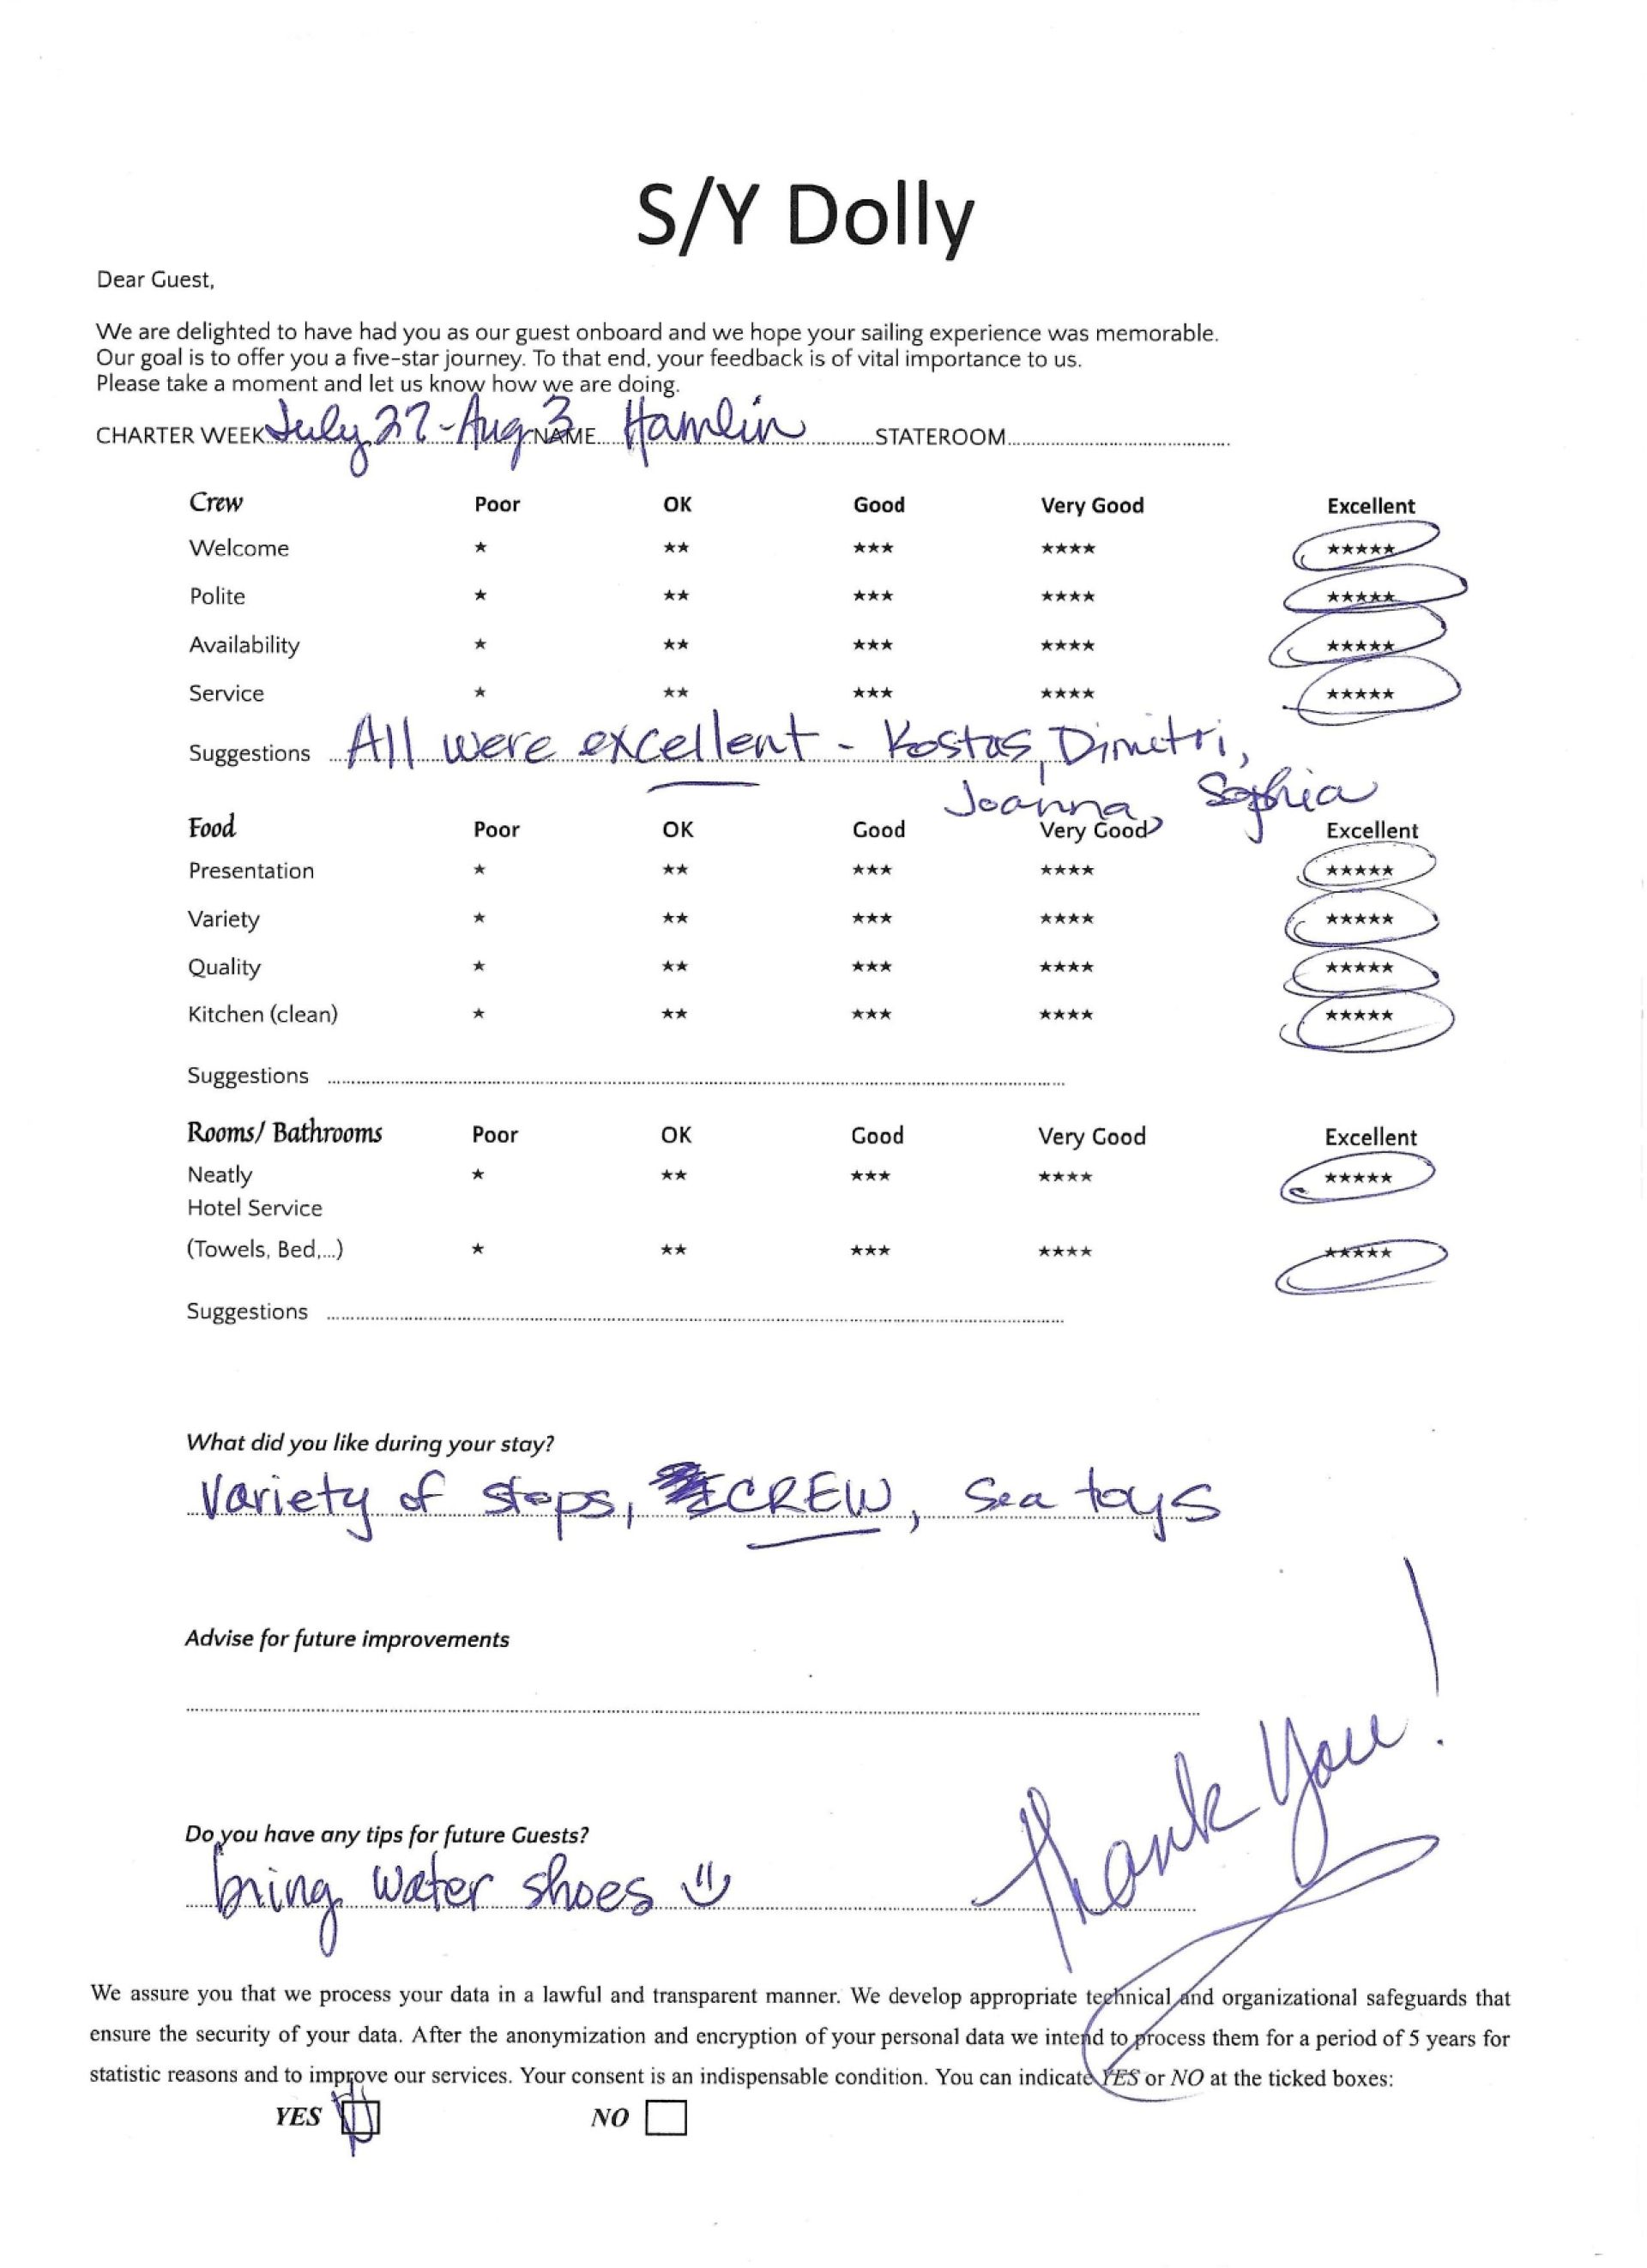 S/Y Dolly
Dear Guest,
We are delighted to have had you as our guest onboard and we hope your sailing experience was memorable.
Our goal is to offer you a five-star journey. To that end, your feedback is of vital importance to us.
Please take a moment and let us know how we are doing.
CHARTER WEEK July 27 - Aug 3 NAME Hamlin STATEROOM
Crew Poor OK Good Very Good Excellent
Welcome ★ ★★ ★★★ ★★★★ ★★★★★
Polite ★ ★★ ★★★ ★★★★ ★★★★★
Availability ★ ★★ ★★★ ★★★★ ★★★★★
Service ★ ★★ ★★★ ★★★★ ★★★★★
Suggestions All were excellent - Kostas, Dimitri,
Joanna, Sophia
Food Poor OK Good Very Good Excellent
Presentation ★ ★★ ★★★ ★★★★ ★★★★★
Variety ★ ★★ ★★★ ★★★★ ★★★★★
Quality ★ ★★ ★★★ ★★★★ ★★★★★
Kitchen (clean) ★ ★★ ★★★ ★★★★ ★★★★★
Suggestions
Rooms/ Bathrooms Poor OK Good Very Good Excellent
Neatly ★ ★★ ★★★ ★★★★ ★★★★★
Hotel Service
(Towels, Bed,...) ★ ★★ ★★★ ★★★★ ★★★★★
Suggestions
What did you like during your stay?
Variety of stops, CREW, Sea toys
Advise for future improvements
Thank You!
Do you have any tips for future Guests?
bring water shoes
We assure you that we process your data in a lawful and transparent manner. We develop appropriate technical and organizational safeguards that
ensure the security of your data. After the anonymization and encryption of your personal data we intend to process them for a period of 5 years for
statistic reasons and to improve our services. Your consent is an indispensable condition. You can indicate YES or NO at the ticked boxes:
YES NO